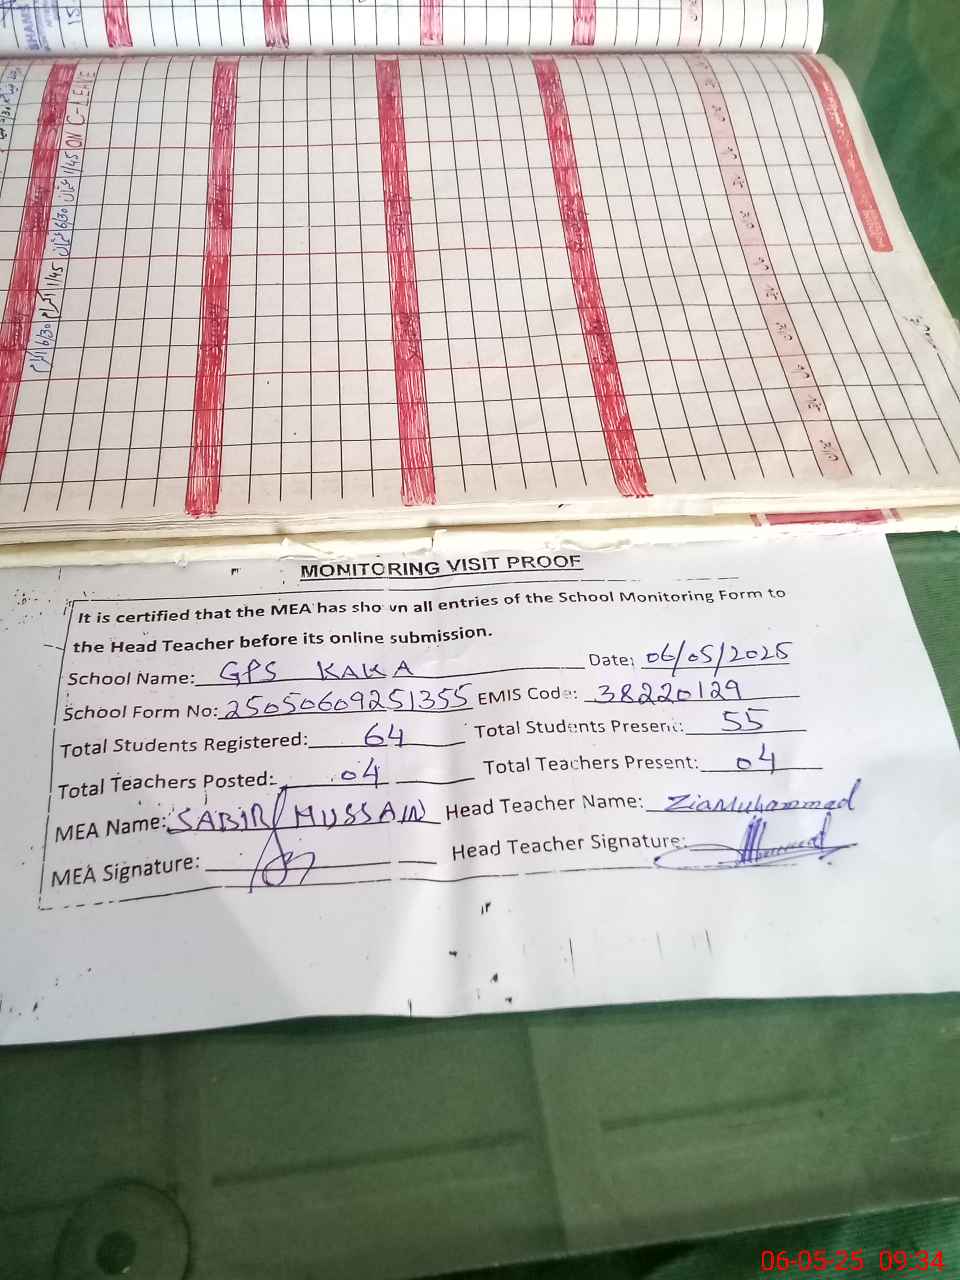 ON C-LEAVE
1/45
6/30
1/45
6/30
MONITORING VISIT PROOF
It is certified that the MEA has shown all entries of the School Monitoring Form to
the Head Teacher before its online submission.
School Name: GPS KAKA Date: 06/05/2025
School Form No: 25050609251355 EMIS Code: 38220129
Total Students Registered: 64 Total Students Present: 55
Total Teachers Posted: 04 Total Teachers Present: 04
MEA Name: SABIR HUSSAIN Head Teacher Name: Zia Muhammad
MEA Signature: Head Teacher Signature:
06-05-25 09:34